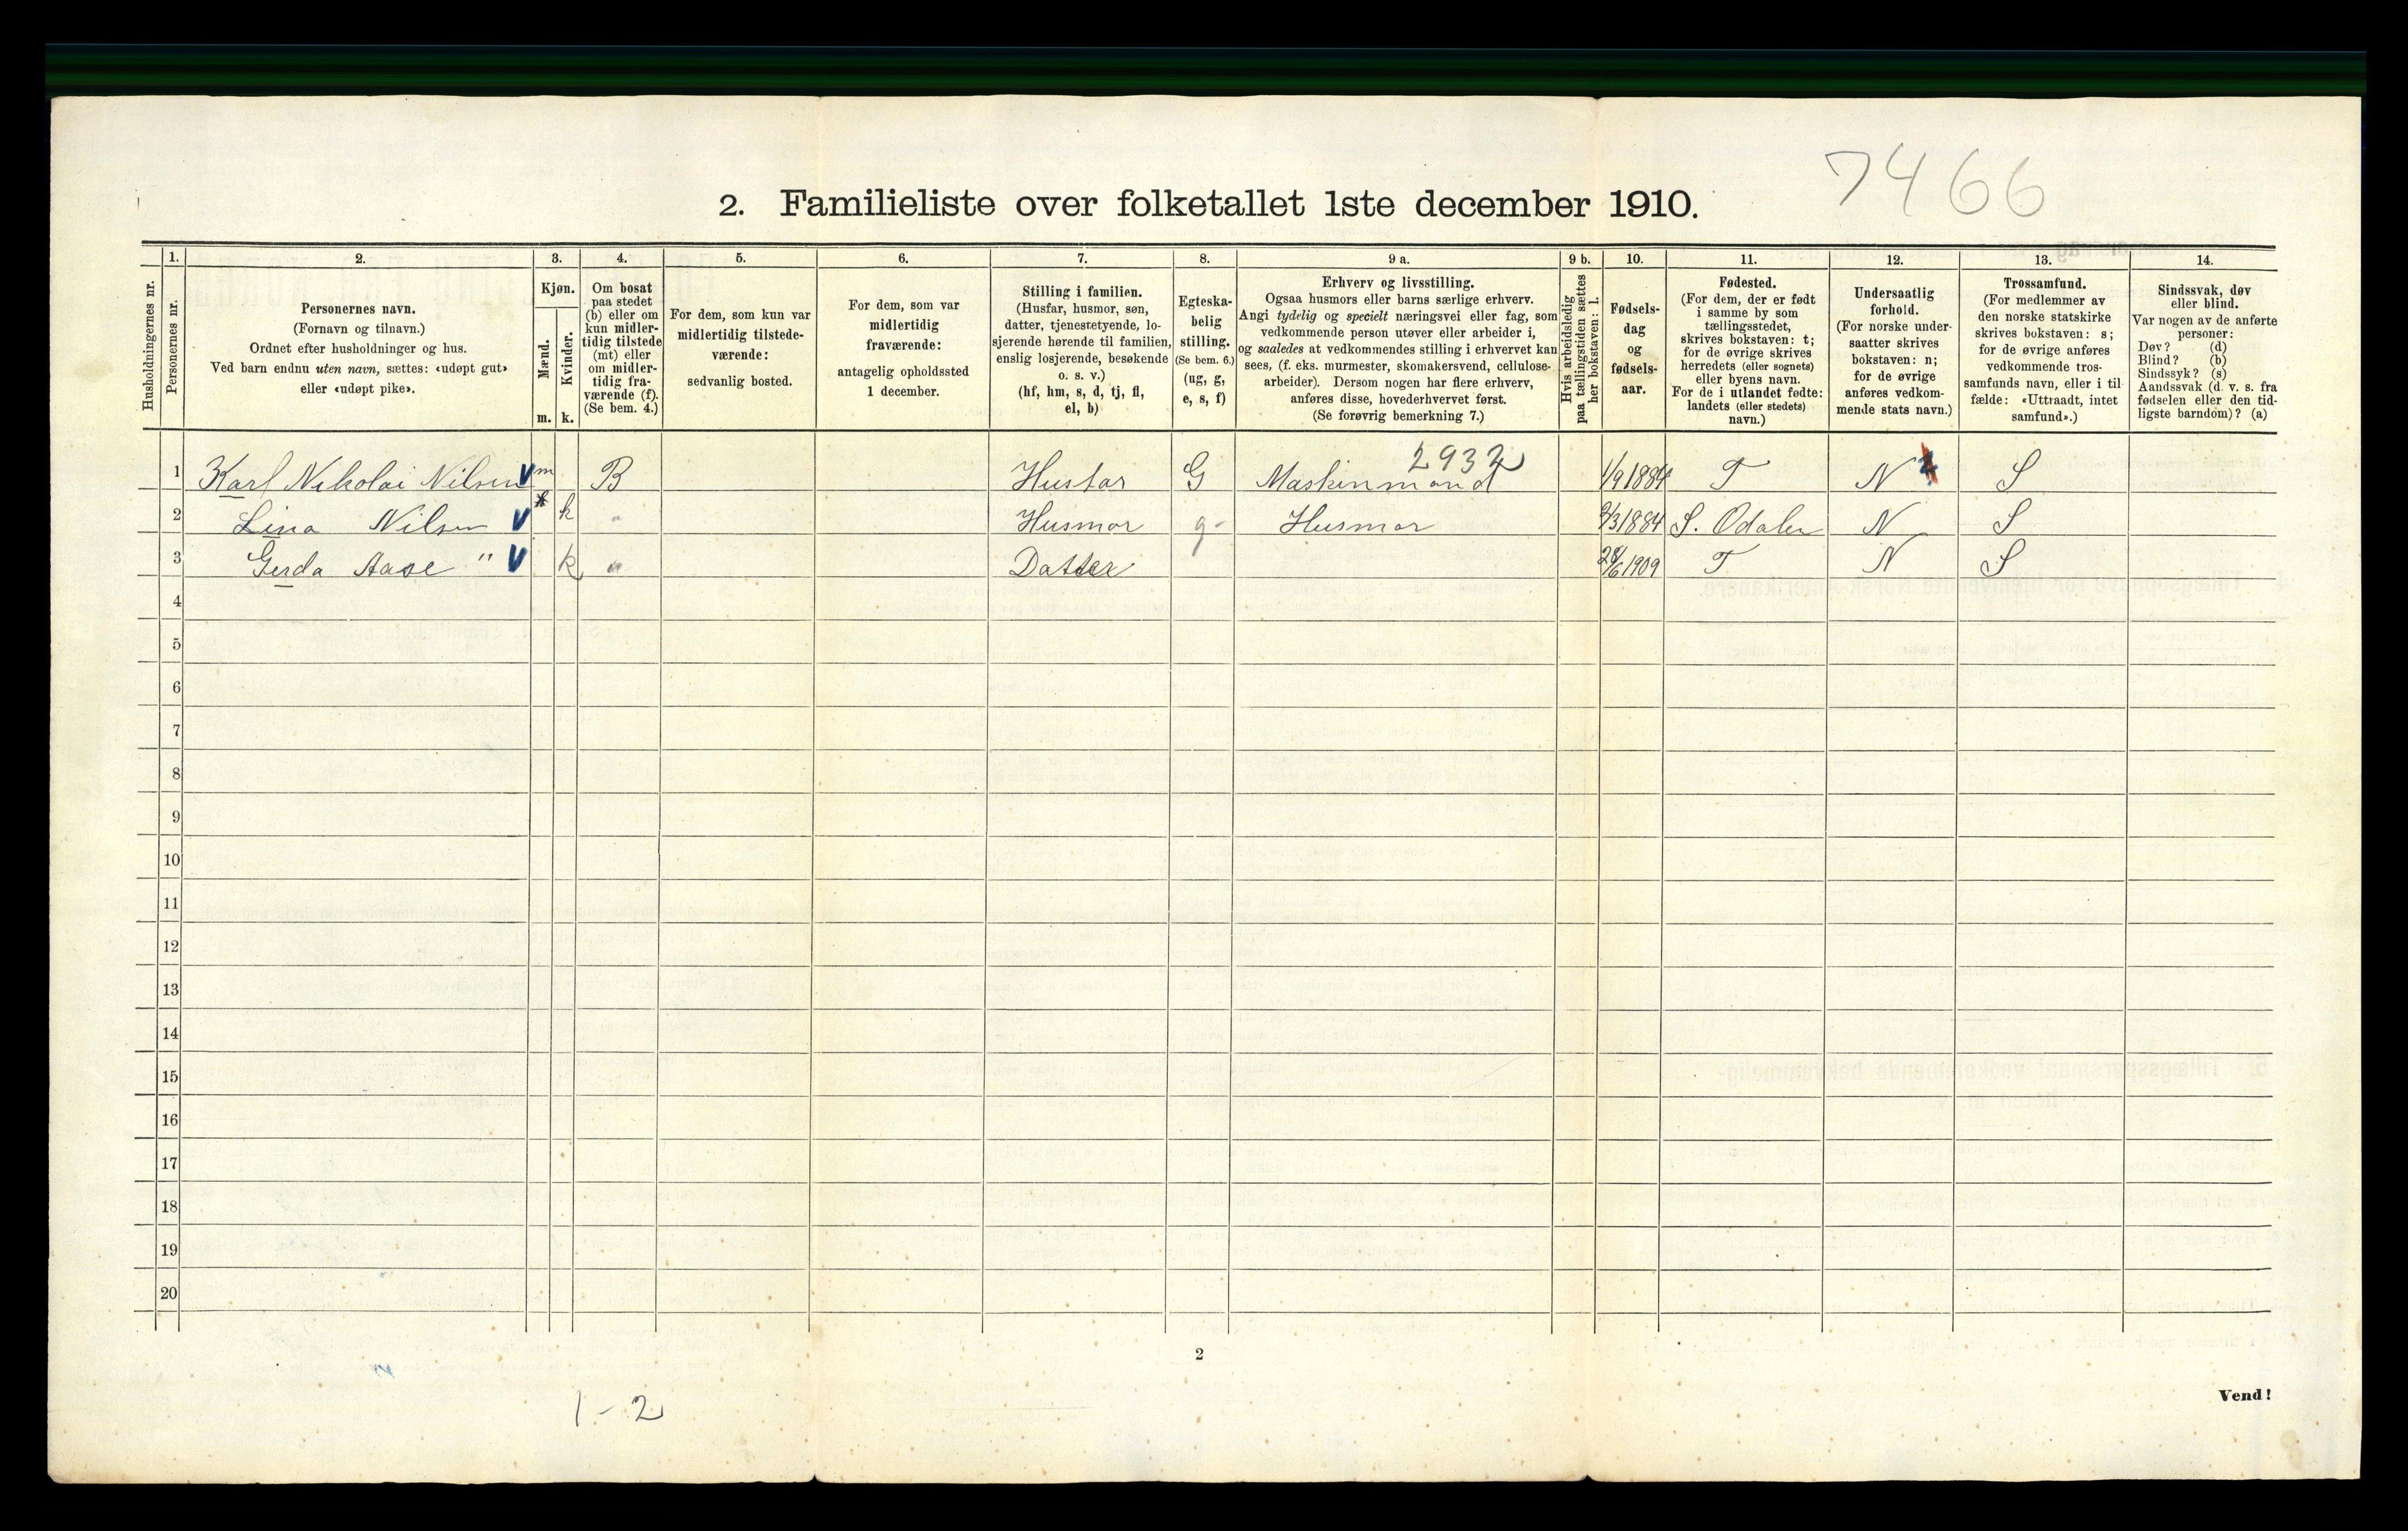 7466
2. Familieliste over folketallet 1ste december 1910.
Husholdningernes nr.
1.
Personernes nr.
2.
Personernes navn.
(Fornavn og tilnavn.)
Ordnet efter husholdninger og hus.
Ved barn endnu uten navn, sættes: «udøpt gut»
eller «udøpt pike».
3.
Kjøn.
Mænd.
Kvinder.
m. k.
4.
Om bosat
paa stedet
(b) eller om
kun midler-
tidig tilstede
(mt) eller
om midler-
tidig fra-
værende (f).
(Se bem. 4.)
5.
For dem, som kun var
midlertidig tilstede-
værende:
sedvanlig bosted.
6.
For dem, som var
midlertidig
fraværende:
antagelig opholdssted
1 december.
7.
Stilling i familien.
(Husfar, husmor, søn,
datter, tjenestetyende, lo-
sjerende hørende til familien,
enslig losjerende, besøkende
o. s. v.)
(hf, hm, s, d, tj, fl,
el, b)
8.
Egteska-
belig
stilling.
(Se bem. 6.)
(ug, g,
e, s, f)
9 a.
Erhverv og livsstilling.
Ogsaa husmors eller barns særlige erhverv.
Angi tydelig og specielt næringsvei eller fag, som
vedkommende person utøver eller arbeider i,
og saaledes at vedkommendes stilling i erhvervet kan
sees, (f. eks. murmester, skomakersvend, cellulose-
arbeider). Dersom nogen har flere erhverv,
anføres disse, hovederhvervet først.
(Se forøvrig bemerkning 7.)
9 b.
Hvis arbeidsledig
paa tællingstiden sættes
her bokstaven: l.
10.
Fødsels-
dag
og
fødsels-
aar.
11.
Fødested.
(For dem, der er født
i samme by som
tællingsstedet,
skrives bokstaven: t;
for de øvrige skrives
herredets (eller sognets)
eller byens navn.
For de i utlandet fødte:
landets (eller stedets)
navn.)
12.
Undersaatlig
forhold.
(For norske under-
saatter skrives
bokstaven: n;
for de øvrige
anføres vedkom-
mende stats navn.)
13.
Trossamfund.
(For medlemmer av
den norske statskirke
skrives bokstaven: s;
for de øvrige anføres
vedkommende tros-
samfunds navn, eller i til-
fælde: «Uttraadt, intet
samfund».)
14.
Sindssvak, døv
eller blind.
Var nogen av de anførte
personer:
Døv? (d)
Blind? (b)
Sindssyk? (s)
Aandssvak (d. v. s. fra
fødselen eller den tid-
ligste barndom)? (a)
2932
1 Karl Nikolai Nilsen V m B Husfar G Maskinmand 1/9 1884 T N S
2 Lina Nilsen V k " Husmor g- Husmor 9/3 1884 S. Odalen N S
3 Gerda Aase " V k " Datter 28/6 1909 T N S
4
5
6
7
8
9
10
11
12
13
14
15
16
17
18
19
20
2
1-2
Vend!